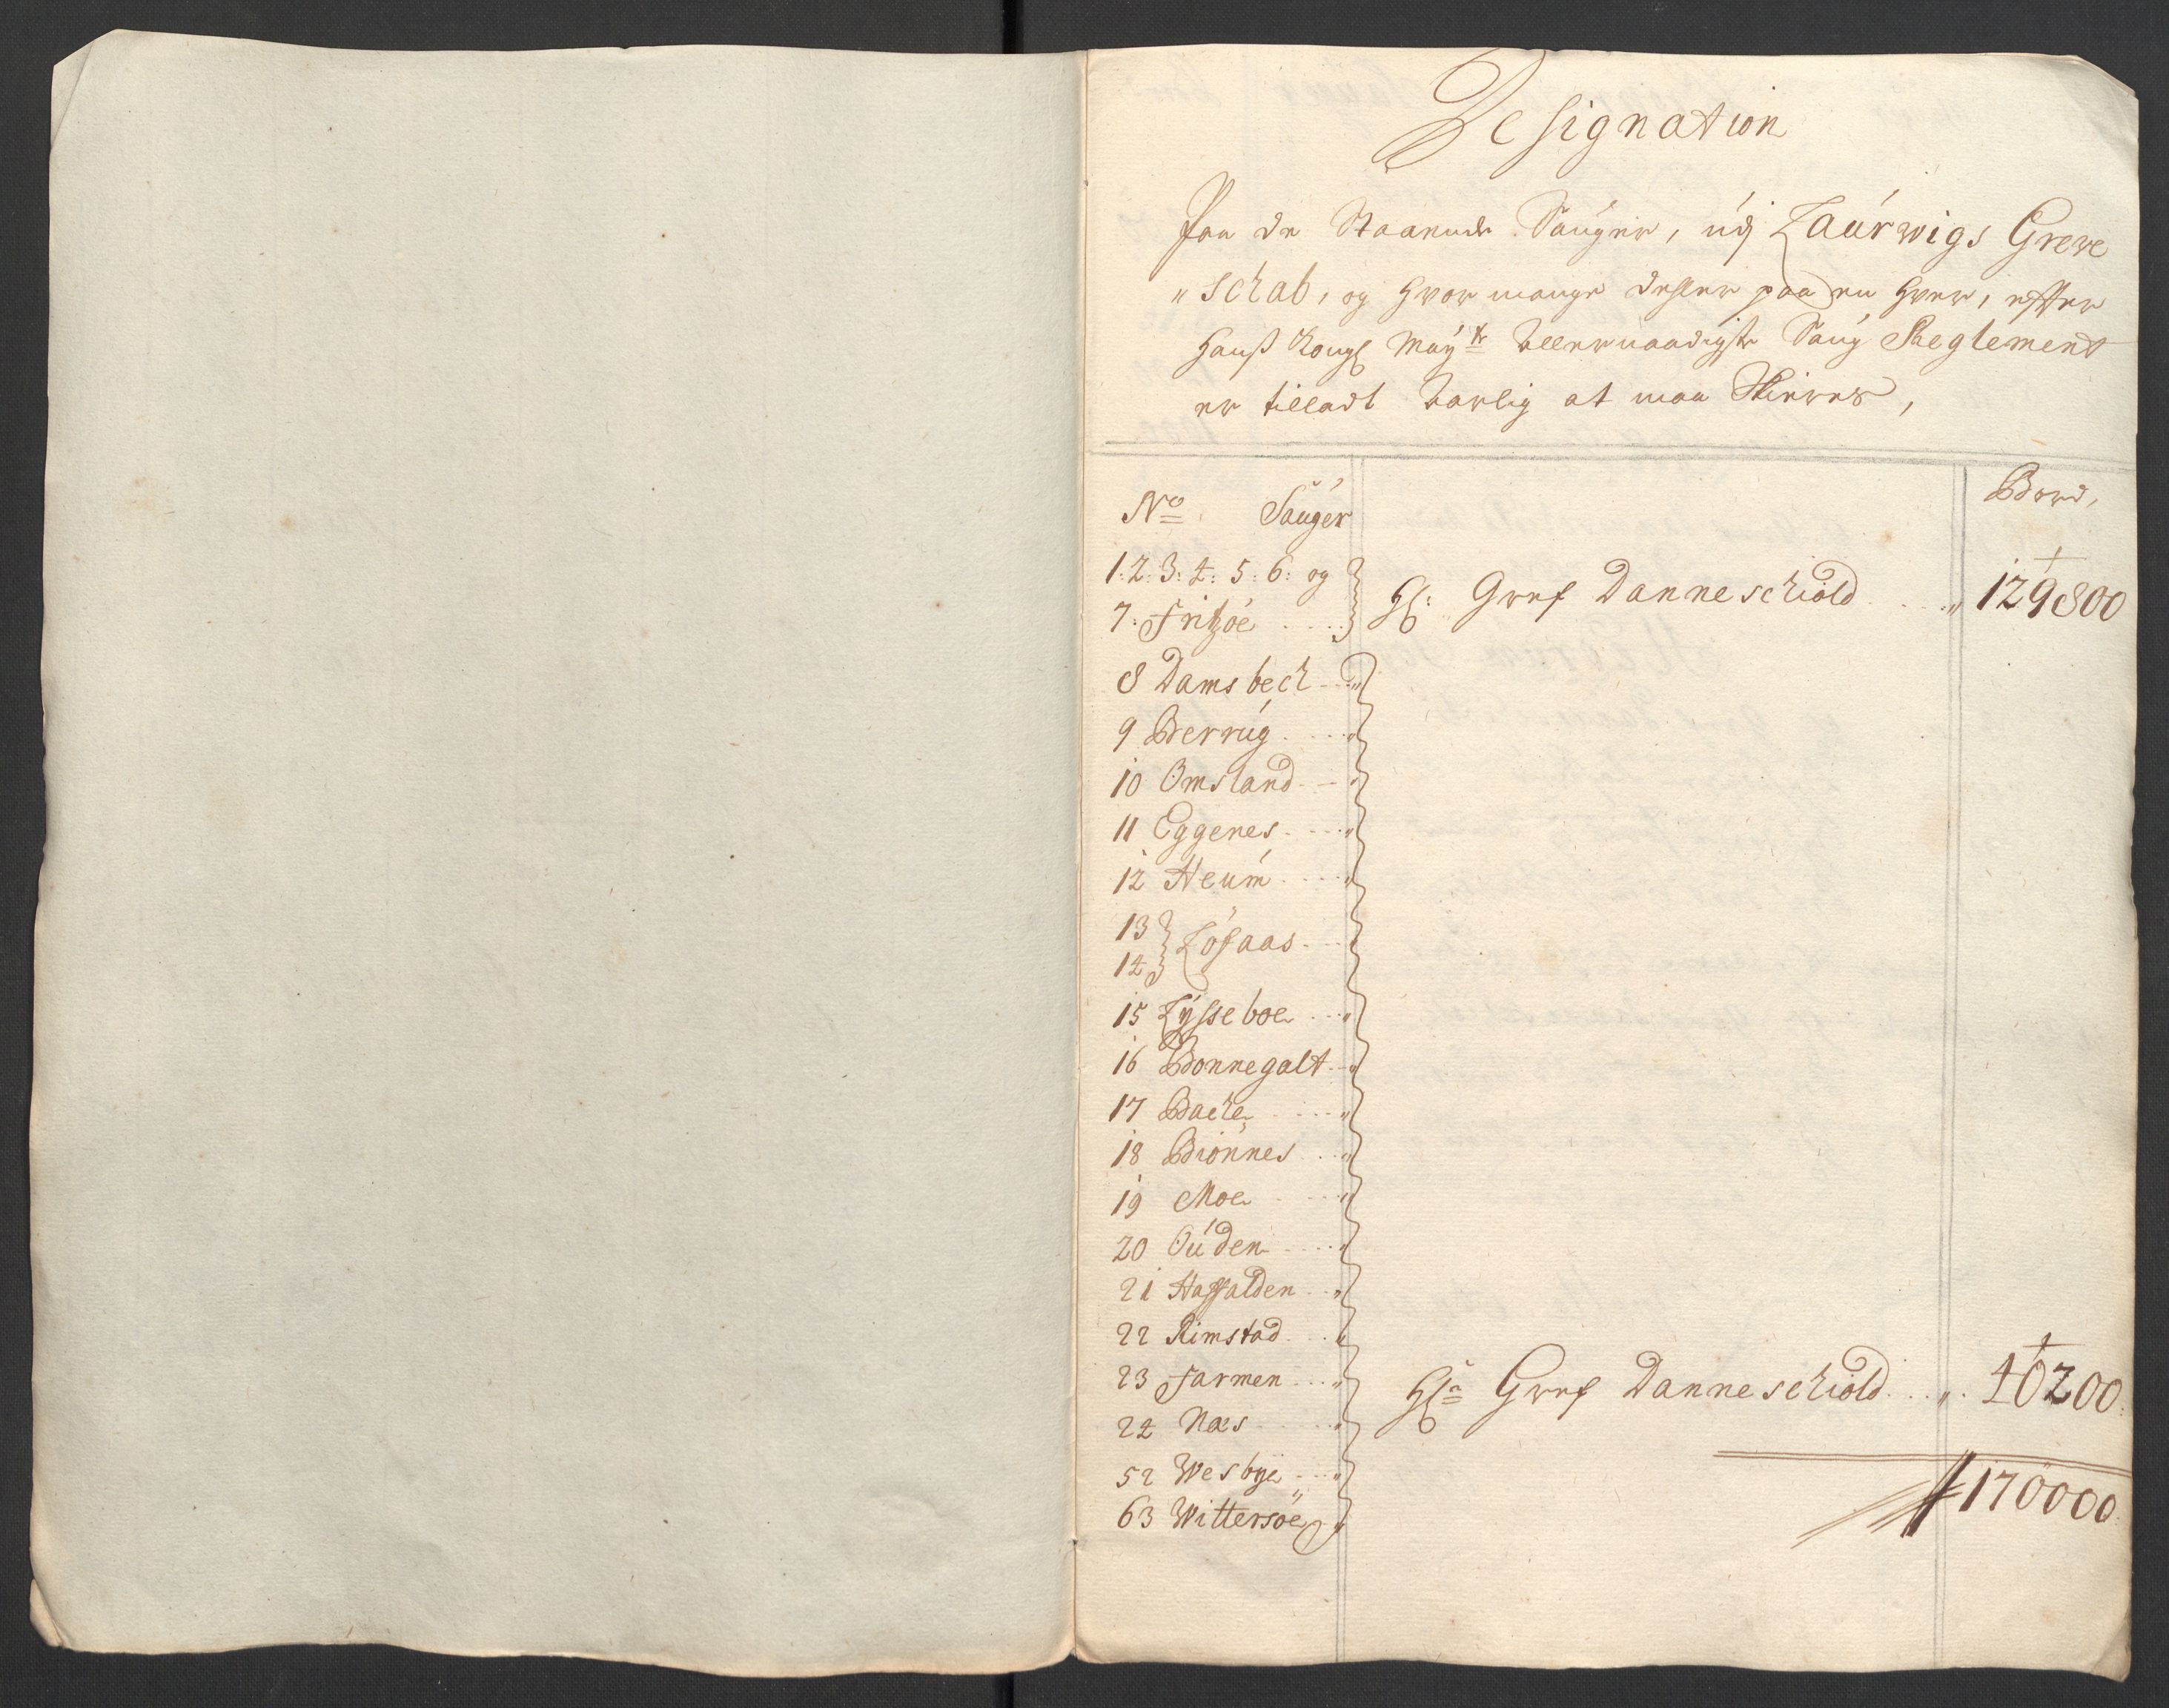 Designation
Paa de Staaende Sauger, udj Laurwigs Greve
"schab, og hvor mange deller paa en hver, effter
Hanß Kongl May:tz Allernaadigste Saug Reglement
er tilladt Aarlig at maa Skieres,
No Sauger Bord,
1: 2: 3: 4: 5: 6: og
7: Fritzöe Hr: Gref Danneschiold 129800
8 Damsbech
9 Berrug
10 Omsland
11 Eggenes
12 Heum
13
14 Lösaas
15 Lysseboe
16 Bonnegalt
17 Bache
18 Biönnes
19 Moe
20 Ouden
21 Haffalden
22 Rimstad
23 Farmen Hr: Gref Danneschiold 40200
24 Næs
52 Wesbye 170000
63 Wittersöe